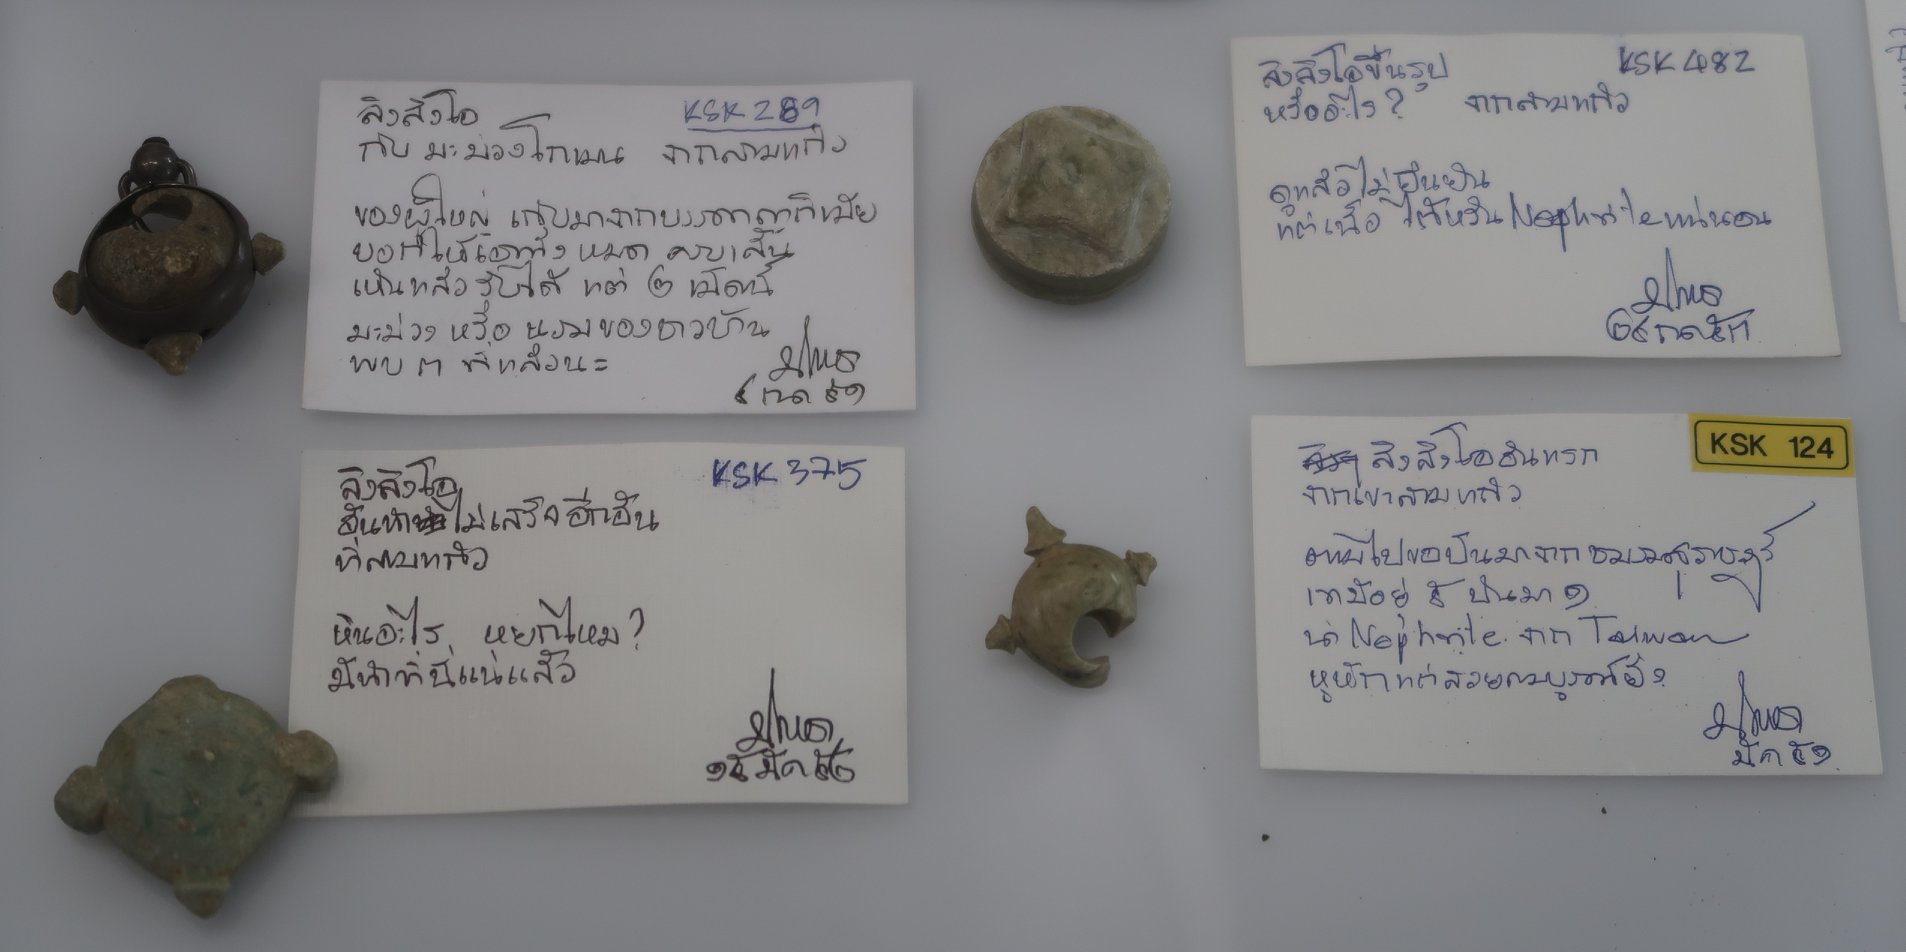 ลิงลิงโอ KSK 289
กับ มะม่วงโกเมน จากสามแก้ว
ของผู้ใหญ่ เก็บมาจากบรรดา
บอกให้เอาทั้งหมด
เห็นแล้วรับได้ แต่ ๒ เม็ดนี้
มะม่วง หรือ ของชาวบ้าน
พบ ๓ ที่แล้วนะ
๕๑
ลิงลิงโอขึ้นรูป KSK 482
หรืออะไร? จากสามแก้ว
ดูแล้วไม่ยืนยัน
แต่เนื้อ ไต้หวัน Nephrite แน่นอน
ลิงลิงโอ KSK 375
ไม่เสร็จอีกอัน
ที่สามแก้ว
หินอะไร หยกไหม?
มีทำที่นี่แน่แล้ว
๑๕ มีค ๕๒
ลิงลิงโออันแรก KSK 124
จากเขาสามแก้ว
ไปขอปันมาจากชมรม
เขามีอยู่ ๕ ปันมา ๑
Nephrite จาก Taiwan
หูหักแต่สวยสมบูรณ์ยิ่ง
มีค ๕๑